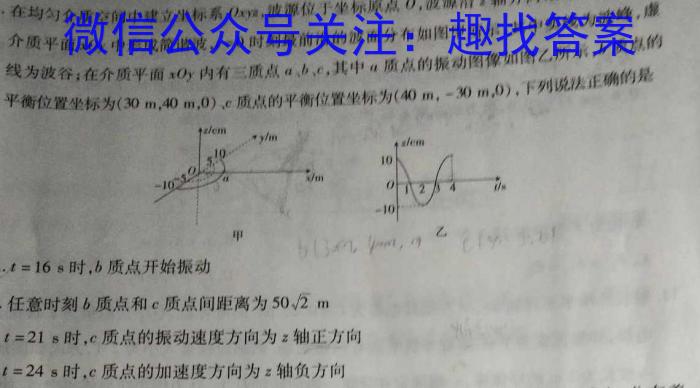 ·在均匀介质空间中建立坐标系Oxyz,波源位于坐标原点O,波源沿z轴方向
微信公众号关注：趣找答案
介质平面
虚
线为波谷;在介质平面xOy内有三质点a、b、c,其中a质点的振动图像如图乙所示,b质点的
平衡位置坐标为(30 m,40 m,0)、c质点的平衡位置坐标为(40 m,-30 m,0),下列说法正确的是
z/cm
y/m
10
5
O
-5
-10
a
x/m
甲
z/cm
10
O
1 2 3 4
t/s
-10
乙
.t=16 s时,b质点开始振动
.任意时刻b质点和c质点间距离为50√2 m
t=21 s时,c质点的振动速度方向为z轴正方向
t=24 s时,c质点的加速度方向为z轴负方向